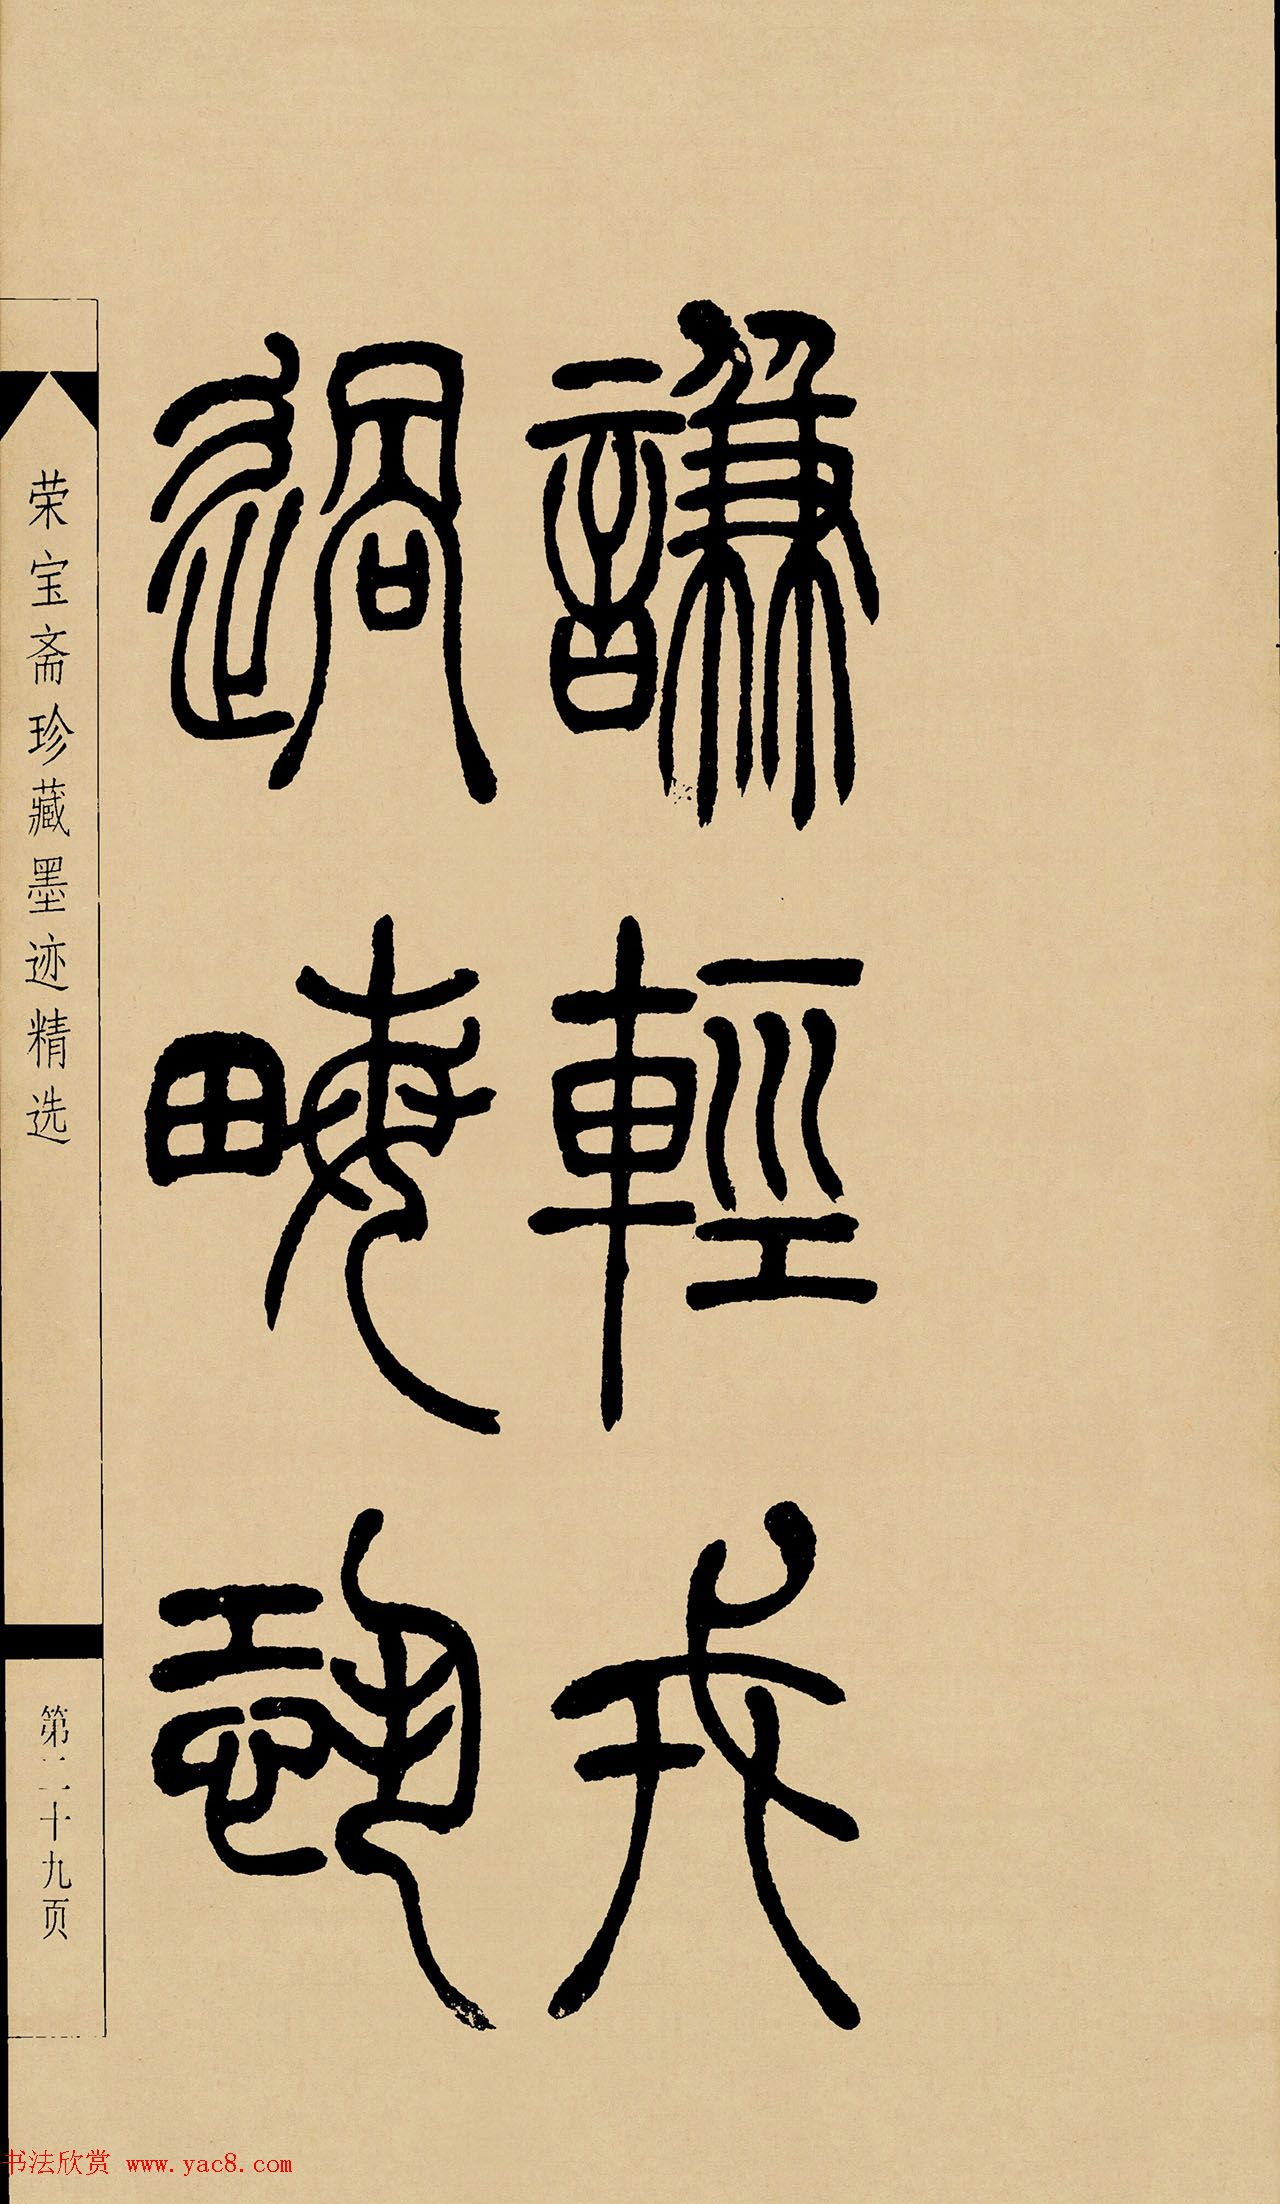 謙輕戎
過畮恐
荣宝斋珍藏墨迹精选
第二十九页
书法欣赏 www.yac8.com